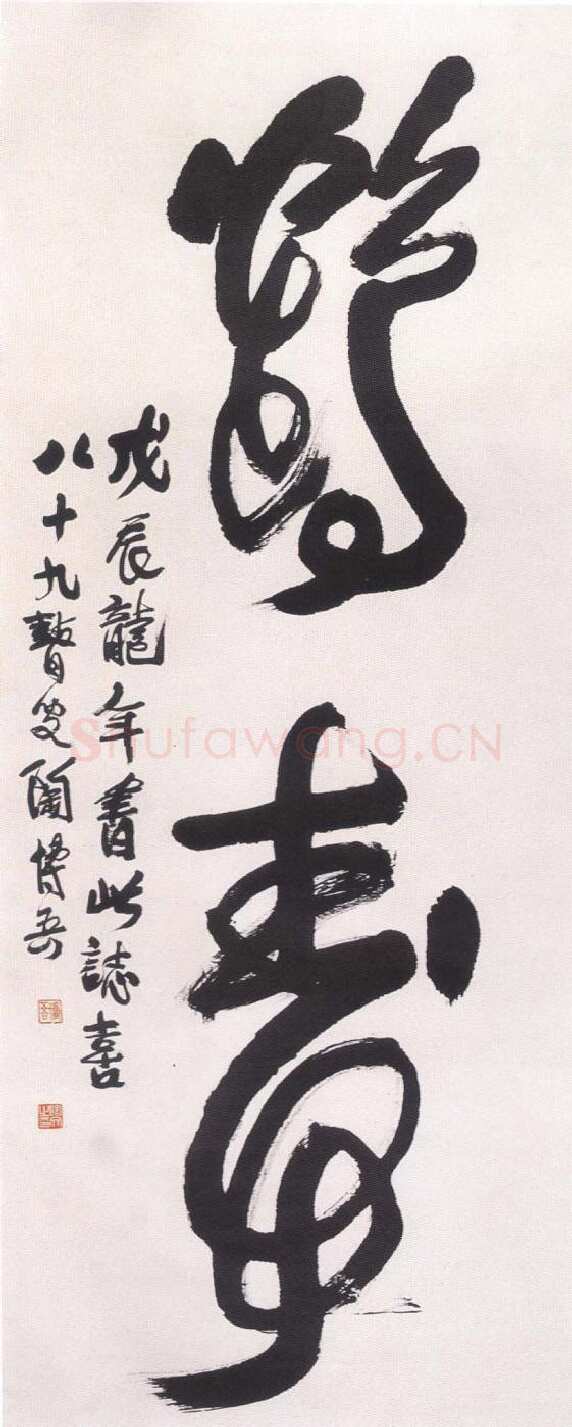 壽
戊辰龍年書此誌喜
八十九瞽叟陶博吾
Shufawang.CN